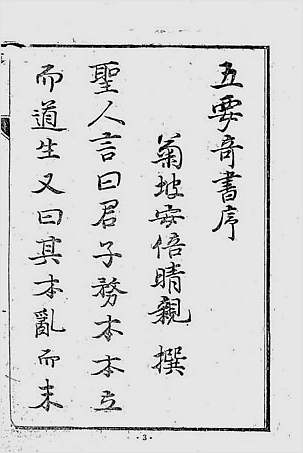 五要奇書序
菊坡安倍晴親 撰
聖人言曰君子務本本立
而道生又曰其本亂而末
· 3 ·